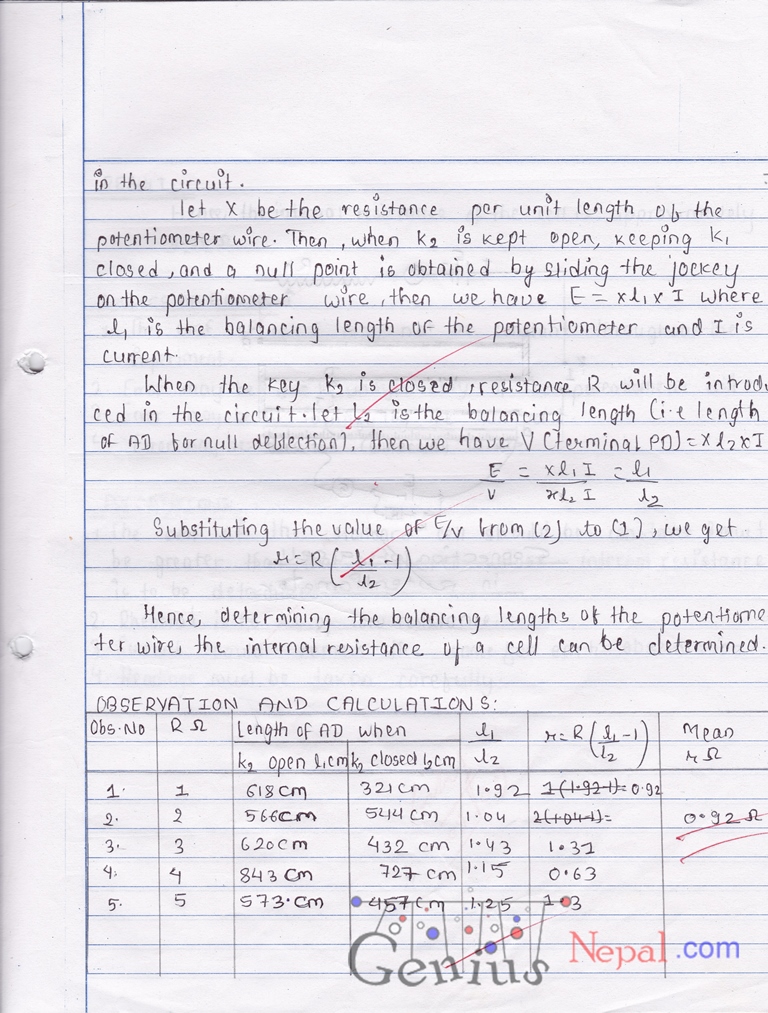 in the circuit.
let X be the resistance per unit length of the
potentiometer wire. Then, when K₂ is kept open, keeping K₁
closed, and a null point is obtained by sliding the jockey
on the potentiometer wire, then we have E = xl₁ x I where
l₁ is the balancing length of the potentiometer and I is
current.
When the key K₂ is closed, resistance R will be introdu
ced in the circuit. let l₂ is the balancing length (i.e length
of AD for null deflection), then we have V (Terminal PD) = x l₂ x I
E/V = xl₁I/xl₂I = l₁/l₂
Substituting the value of E/V from (2) to (1), we get
r = R (l₁/l₂ - 1)
Hence, determining the balancing lengths of the potentiome
ter wire, the internal resistance of a cell can be determined.
OBSERVATION AND CALCULATIONS:
Obs. No R Ω Length of AD when l₁/l₂ r = R (l₁/l₂ - 1) Mean r Ω
K₂ open l₁ cm K₂ closed l₂ cm
1. 1 618 cm 321 cm 1.92 1(1.92-1)= 0.92
2. 2 566 cm 544 cm 1.04 2(1.04-1)= 0.92 Ω
3. 3 620 cm 432 cm 1.43 1.31
4. 4 843 cm 727 cm 1.15 0.63
5. 5 573.cm 457 cm 1.25 1.3
Genius Nepal.com